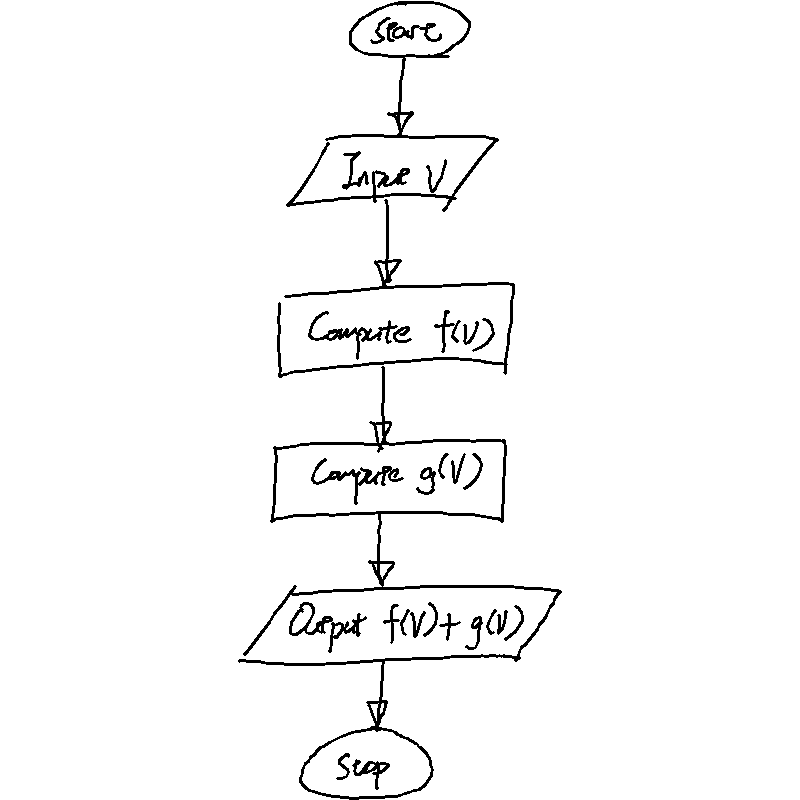 Start
Input V
Compute f(V)
Compute g(V)
Output f(V)+ g(V)
Stop